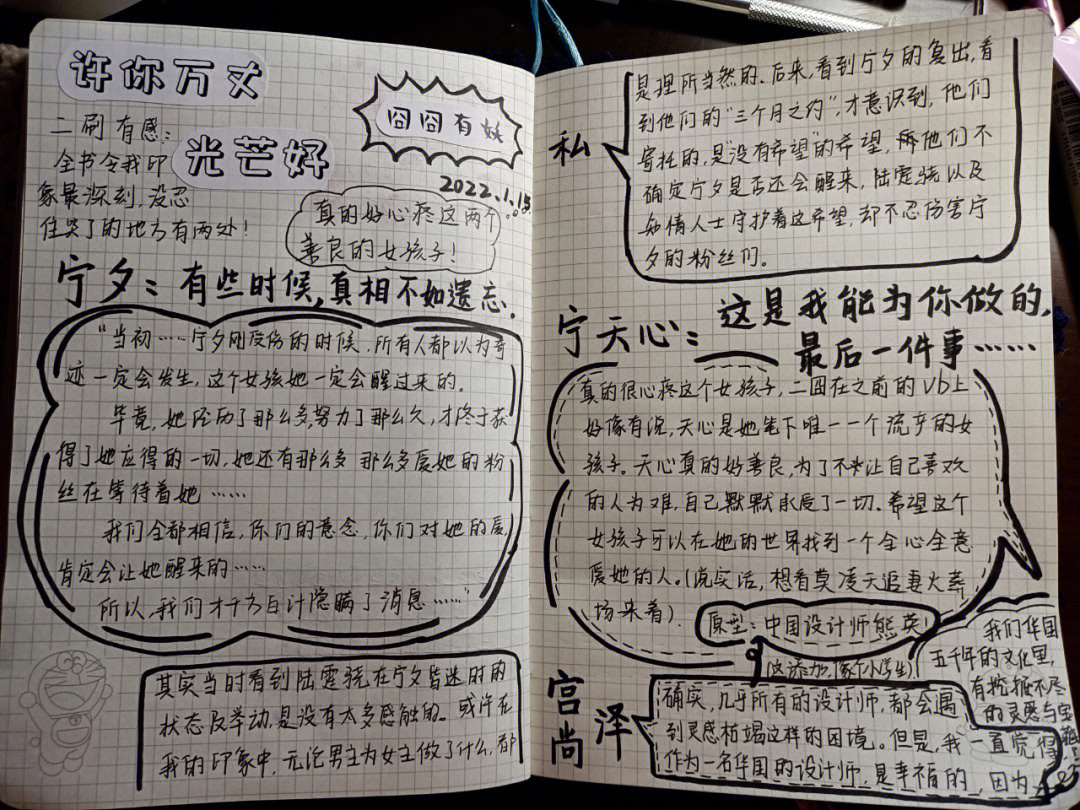 许你万丈
光芒好
囧囧有妖
2022.1.15
二刷有感:
全书令我印
象最深刻,没忍
住哭了的地方有两处!
真的好心疼这两个
善良的女孩子!
宁夕:有些时候,真相不如遗忘.
"当初……宁夕刚受伤的时候,所有人都以为奇
迹一定会发生,这个女孩她一定会醒过来的。
毕竟,她经历了那么多,努力了那么久,才终于获
得了她应得的一切,她还有那么多 那么多爱她的粉
丝在等待着她……
我们全都相信,你们的意念,你们对她的爱,
肯定会让她醒来的……
所以,我们才千方百计隐瞒了消息……"
其实当时看到陆霆骁在宁夕昏迷时的
状态及举动,是没有太多感触的。或许在
我的印象中,无论男主为女主做了什么,都
私
是理所当然的.后来,看到宁夕的复出,看
到他们的"三个月之约",才意识到,他们
寄托的,是"没有希望"的希望,他们不
确定宁夕是否还会醒来,陆霆骁以及
知情人士守护着这希望,却不忍伤害宁
夕的粉丝们。
宁天心:这是我能为你做的,
最后一件事……
真的很心疼这个女孩子,二囧在之前的vb上
好像有说,天心是她笔下唯一一个流产的女
孩子.天心真的好善良,为了不让自己喜欢
的人为难,自己默默承受了一切.希望这个
女孩子可以在她的世界找到一个全心全意
爱她的人。(说实话,想看莫凌天追妻火葬
场来着)
原型:中国设计师熊英
宫尚泽
确实,几乎所有的设计师,都会遇
到灵感枯竭这样的困境。但是,我一直觉得,
作为一名华国的设计师,是幸福的,因为
我们华国
五千年的文化里,
有挖掘不尽
的灵感与宝藏